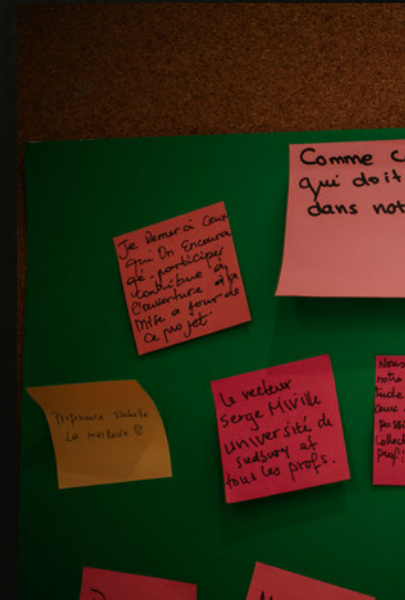 Comme c
qui doit
dans not
Je Remerci Ceux
qui On Encoura
gé-participer
contribue à
l'ouverture et à
Mise a jour de
ce projet.
Professeure Isabelle
La meilleure ☺
Le recteur
Serge Miville
université de
sudbury et
tous les profs.
Nous
notre
tude
ceux
possi
Collect
prof